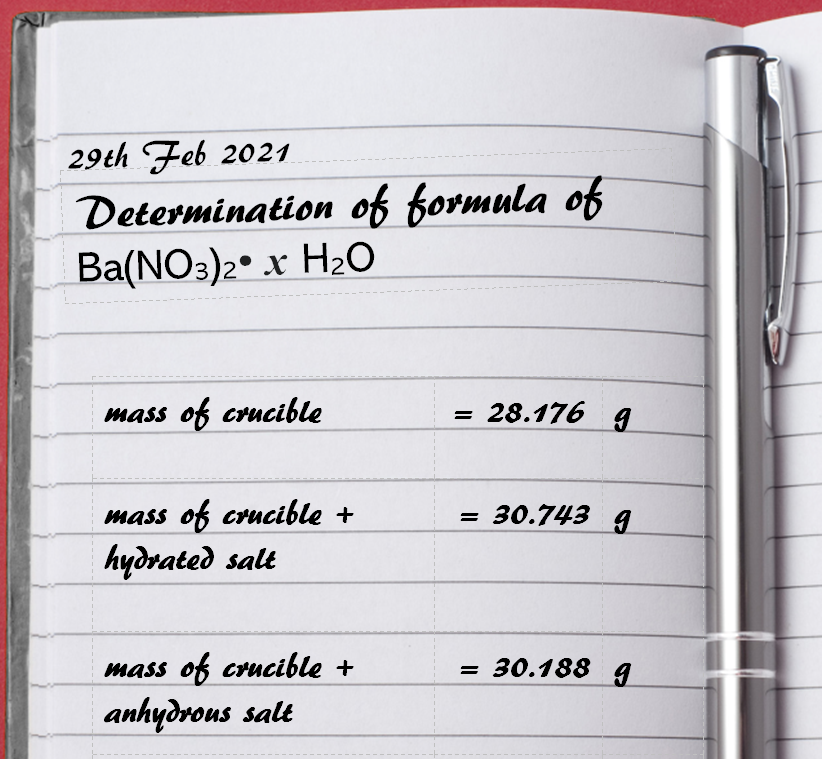 29th Feb 2021
Determination of formula of
Ba(NO₃)₂• x H₂O
mass of crucible = 28.176 g
mass of crucible + = 30.743 g
hydrated salt
mass of crucible + = 30.188 g
anhydrous salt